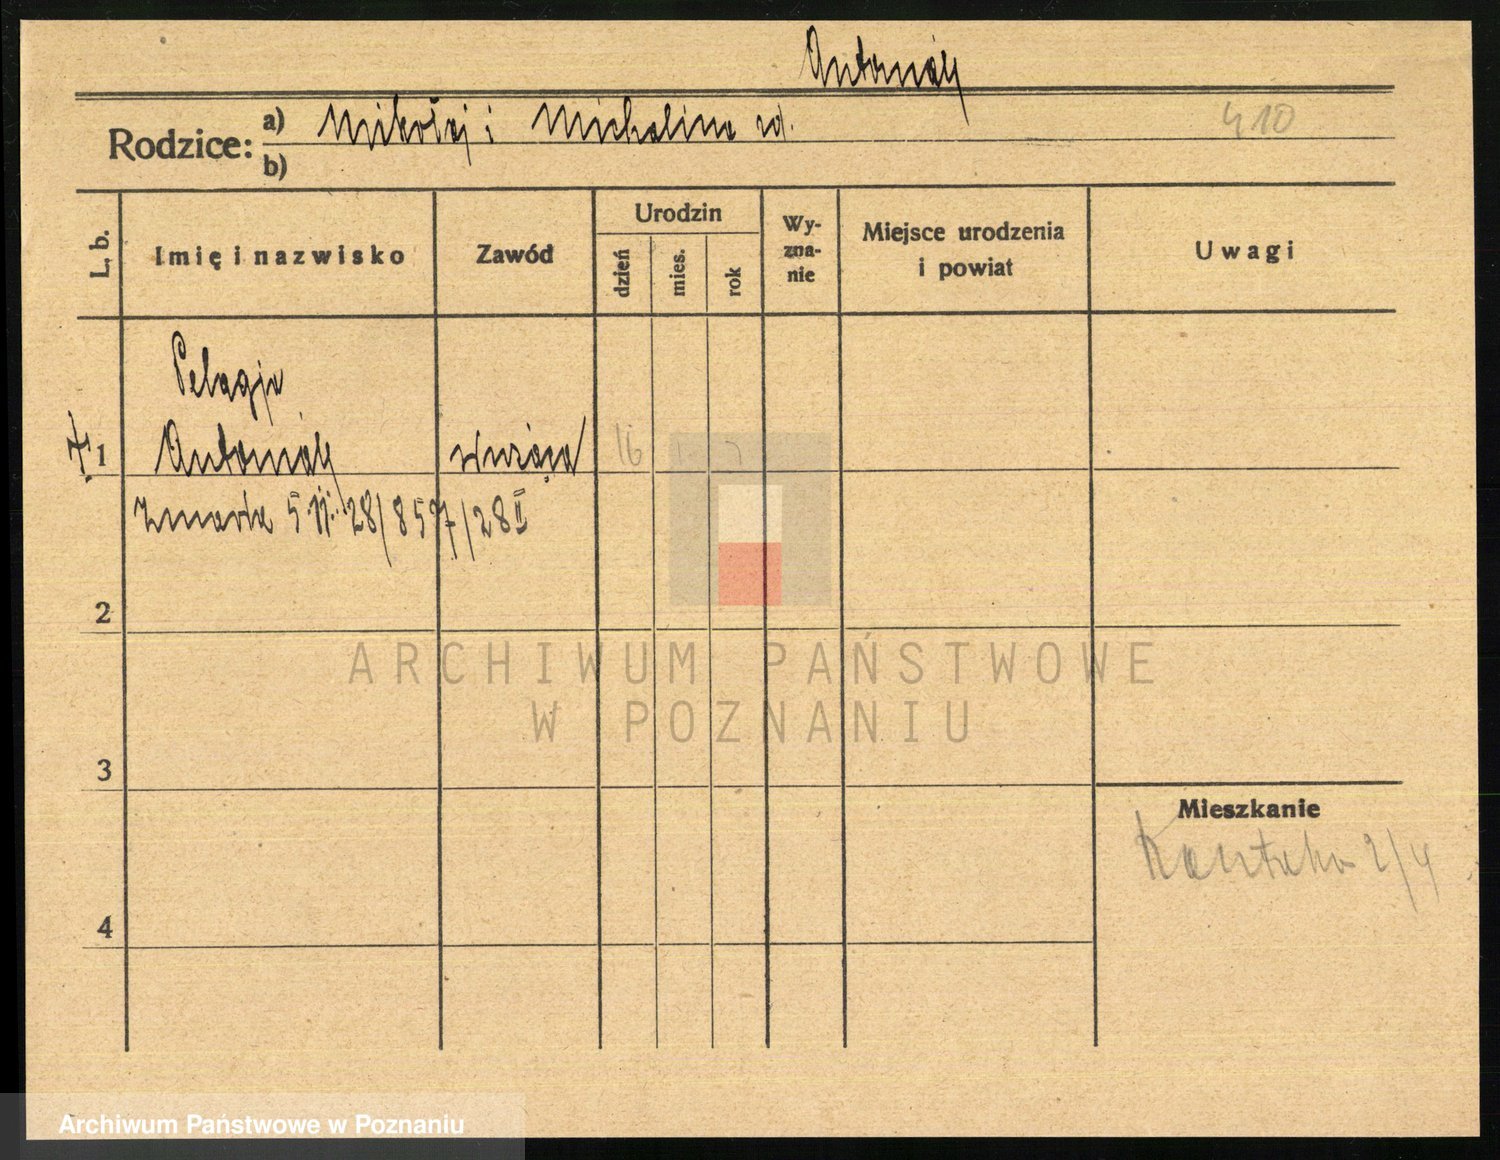 Antoniak
Rodzice: a) Mikołaj i Michalina zd.
410
b)
L. b.
Imię i nazwisko
Zawód
Urodzin
dzień
mies.
rok
Wy-
zna-
nie
Miejsce urodzenia
i powiat
Uwagi
Pelagja
1 Antoniak
16
Zmarła 5 II. 28/857/28 II
2
ARCHIWUM PAŃSTWOWE
W POZNANIU
3
Mieszkanie
2/4
4
Archiwum Państwowe w Poznaniu